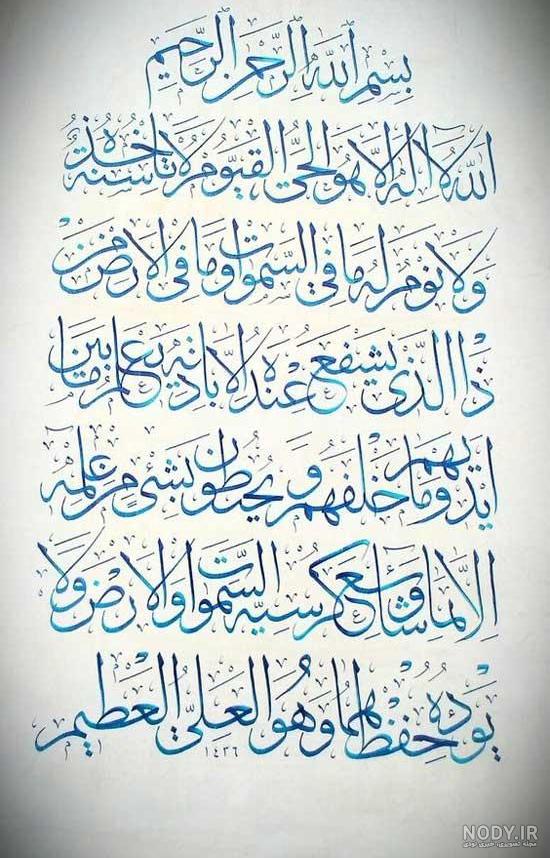 بِسْمِ اللهِ الرَّحْمنِ الرَّحيمِ
الله لا اله الا هو الحيّ القيّوم لا تأخذه سنة
ولا نوم له ما في السّموات وما في الارض من
ذا الّذي يشفع عنده الا باذنه يعلم ما بين
ايديهم وما خلفهم ولا يحيطون بشئ من علمه
الا بما شاء وسع كرسيه السّموات والارض ولا
يؤده حفظهما وهو العليّ العظيم
١٤٣٦
NODY.IR
مجله تصویری، خبری نودی